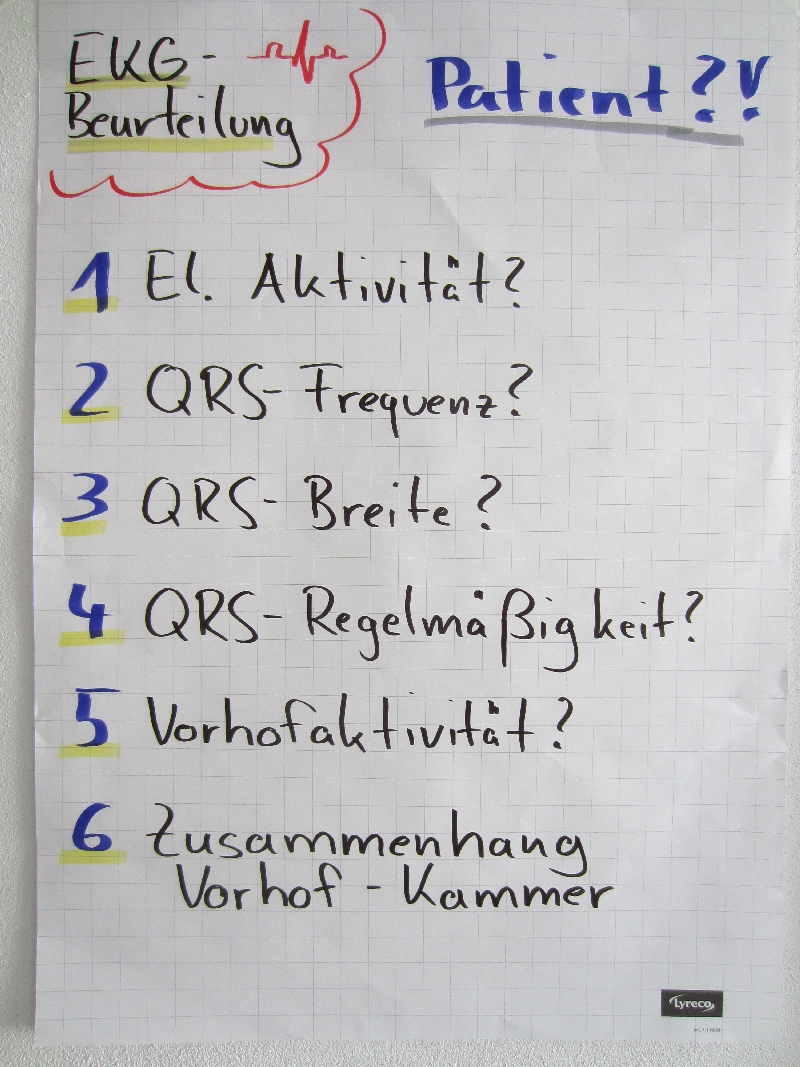 EKG-
Beurteilung
Patient?!
1 El. Aktivität?
2 QRS-Frequenz?
3 QRS-Breite?
4 QRS-Regelmäßigkeit?
5 Vorhofaktivität?
6 Zusammenhang
Vorhof - Kammer
Lyreco